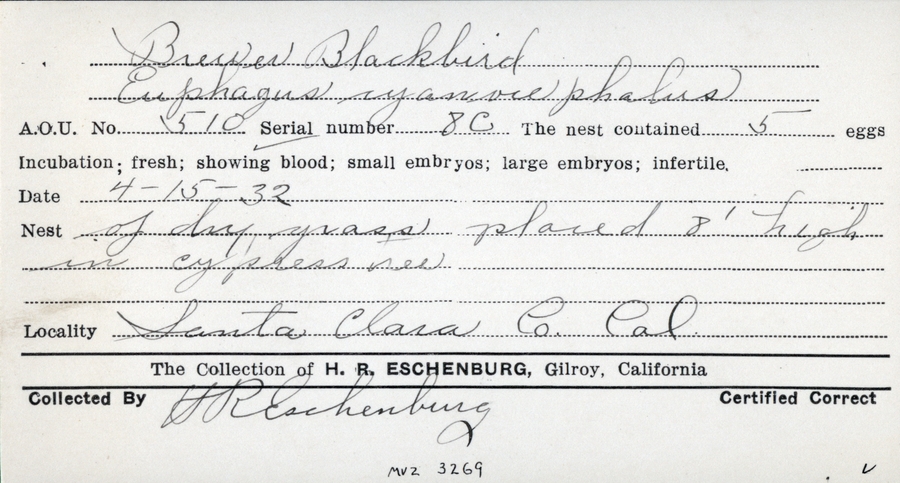 Brewer Blackbird
Euphagus cyanocephalus
A.O.U. No. 510 Serial number 8C The nest contained 5 eggs
Incubation; fresh; showing blood; small embryos; large embryos; infertile.
Date 4-15-32
Nest of dry grass placed 8' high
in cypress tree
Locality Santa Clara Co. Cal
The Collection of H. R. ESCHENBURG, Gilroy, California
Collected By H R Eschenburg Certified Correct
MVZ 3269